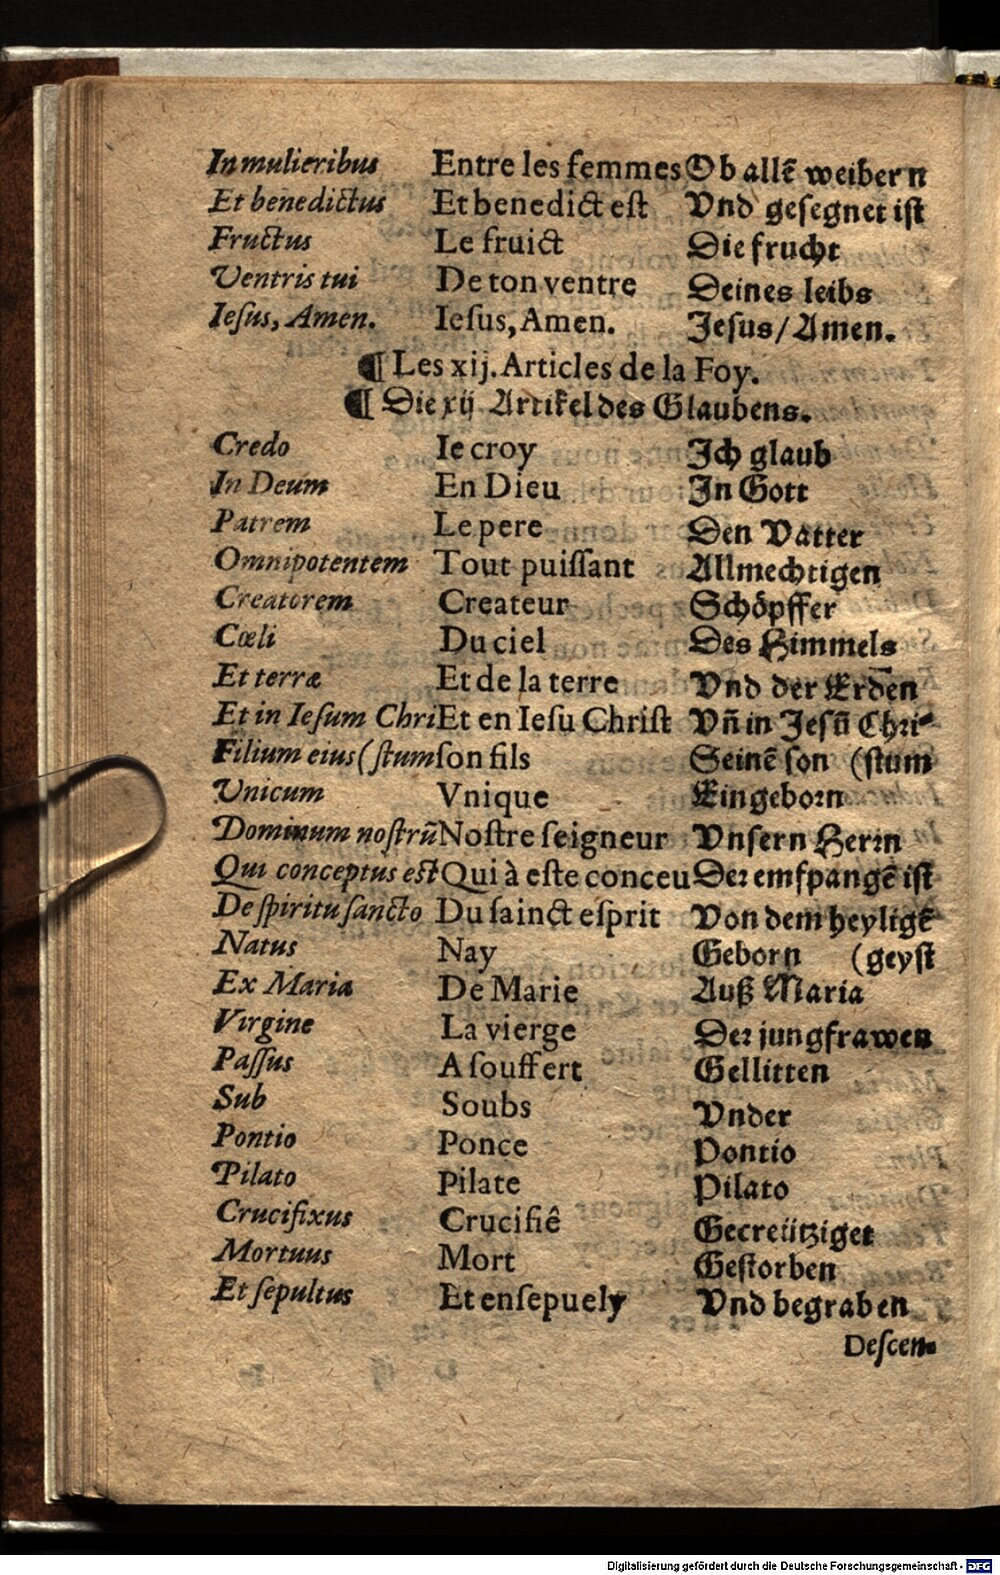 In mulieribus Entre les femmes Ob allē weibern
Et benedictus Et benedict est Vnd gesegnet ist
Fructus Le fruict Die frucht
Ventris tui De ton ventre Deines leibs
Iesus, Amen. Iesus, Amen. Jesus/Amen.
¶ Les xij. Articles de la Foy.
¶ Die xij Artikel des Glaubens.
Credo Ie croy Jch glaub
In Deum En Dieu Jn Gott
Patrem Le pere Den Vatter
Omnipotentem Tout puissant Allmechtigen
Creatorem Createur Schöpffer
Cœli Du ciel Des Himmels
Et terræ Et de la terre Vnd der Erden
Et in Iesum Chri Et en Iesu Christ Vñ in Jesū Chri-
Filium eius (stum son fils Seinē son (stum
Unicum Vnique Eingeborn
Dominum nostrū Nostre seigneur Vnsern Herrn
Qui conceptus est Qui à este conceu Der emfpangē ist
De spiritu sancto Du sainct esprit Von dem heyligē
Natus Nay Geborn (geyst
Ex Maria De Marie Auß Maria
Virgine La vierge Der jungfrawen
Passus A souffert Gellitten
Sub Soubs Vnder
Pontio Ponce Pontio
Pilato Pilate Pilato
Crucifixus Crucifiê Gecreütziget
Mortuus Mort Gestorben
Et sepultus Et ensepuely Vnd begraben
Descen-
Digitalisierung gefördert durch die Deutsche Forschungsgemeinschaft - DFG